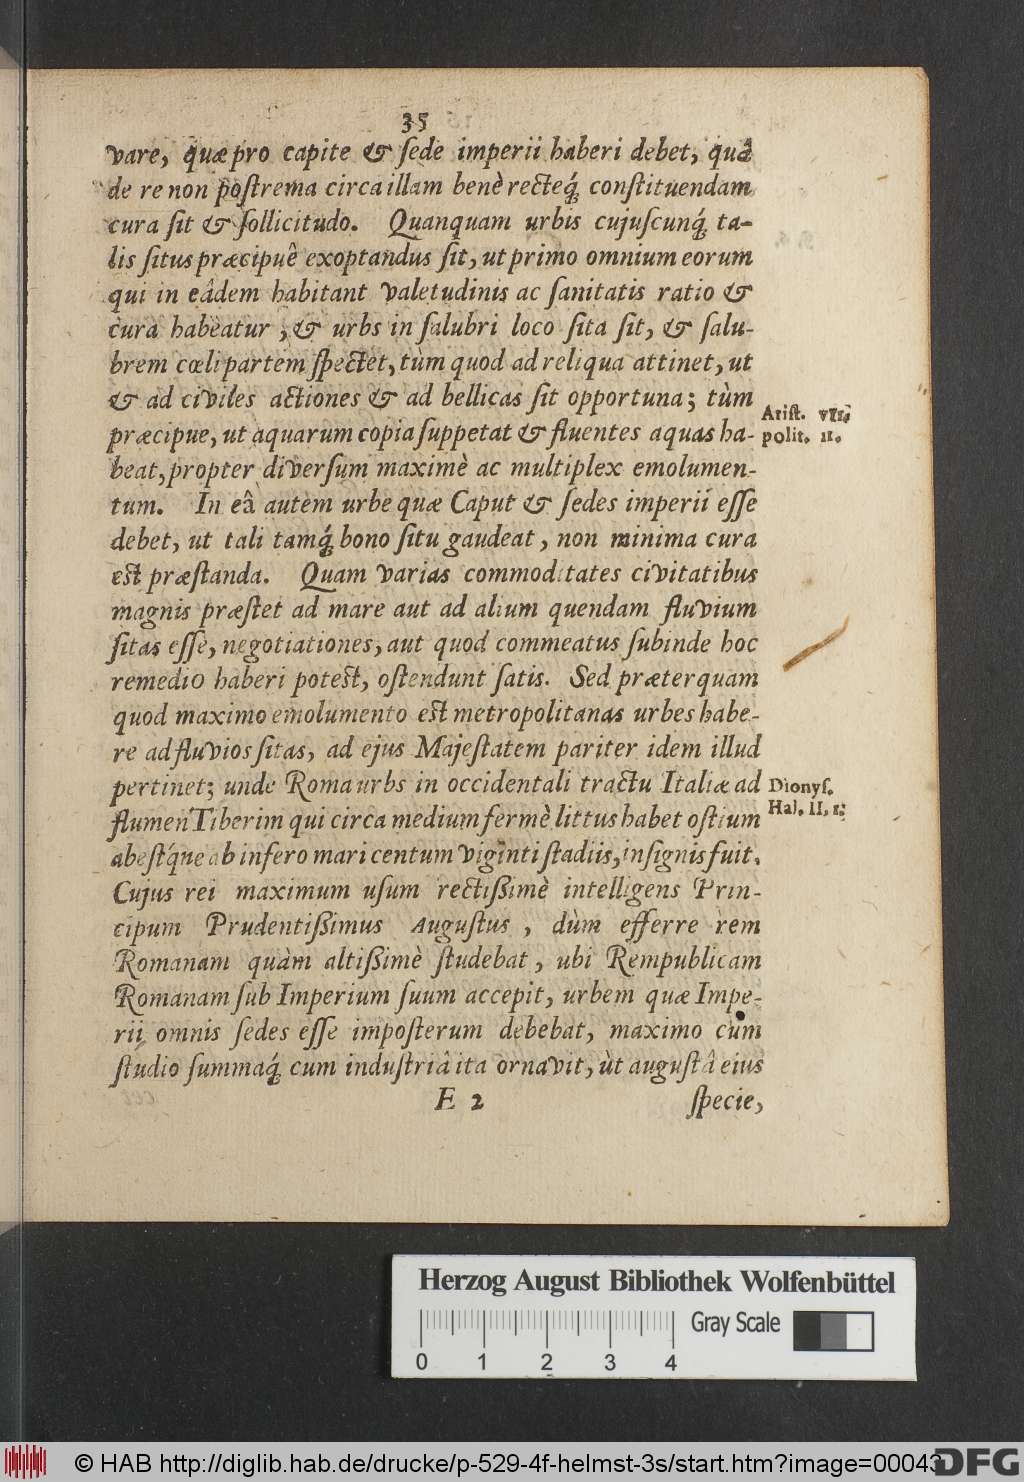 35
vare, quæ pro capite & ſede imperii haberi debet, quâ
de re non poſtrema circa illam benè recteq́; conſtituendam
cura ſit & ſollicitudo. Quanquam urbis cujuſcunq́; ta-
lis ſitus præcipuê exoptandus ſit, ut primo omnium eorum
qui in eâdem habitant valetudinis ac ſanitatis ratio &
cura habeatur, & urbs in ſalubri loco ſita ſit, & ſalu-
brem cœli partem ſpectet, tùm quod ad reliqua attinet, ut
& ad civiles actiones & ad bellicas ſit opportuna; tùm
præcipue, ut aquarum copia ſuppetat & fluentes aquas ha-
beat, propter diverſum maximè ac multiplex emolumen-
tum. In eâ autem urbe quæ Caput & ſedes imperii eſſe
debet, ut tali tamq́; bono ſitu gaudeat, non minima cura
est præſtanda. Quam varias commoditates civitatibus
magnis præſtet ad mare aut ad alium quendam fluvium
ſitas eſſe, negotiationes, aut quod commeatus ſubinde hoc
remedio haberi potest, oſtendunt ſatis. Sed præterquam
quod maximo emolumento est metropolitanas urbes habe-
re ad fluvios ſitas, ad ejus Majeſtatem pariter idem illud
pertinet; unde Roma urbs in occidentali tractu Italiæ ad
flumen Tiberim qui circa medium fermè littus habet oſtium
abeſtq́ue ab infero mari centum viginti ſtadiis, inſignis fuit.
Cujus rei maximum uſum rectißimè intelligens Prin-
cipum Prudentißimus Auguſtus, dùm efferre rem
Romanam quàm altißimè ſtudebat, ubi Rempublicam
Romanam ſub Imperium ſuum accepit, urbem quæ Impe-
rii omnis ſedes eſſe impoſterum debebat, maximo cùm
ſtudio ſummaq́; cum induſtriâ ita ornavit, ùt auguſtâ eius
E 2 ſpecie,
Ariſt. VII.
polit. II.
Dionyſ.
Hal. II, 1.
Herzog August Bibliothek Wolfenbüttel
Gray Scale
0 1 2 3 4
© HAB http://diglib.hab.de/drucke/p-529-4f-helmst-3s/start.htm?image=00043
DFG